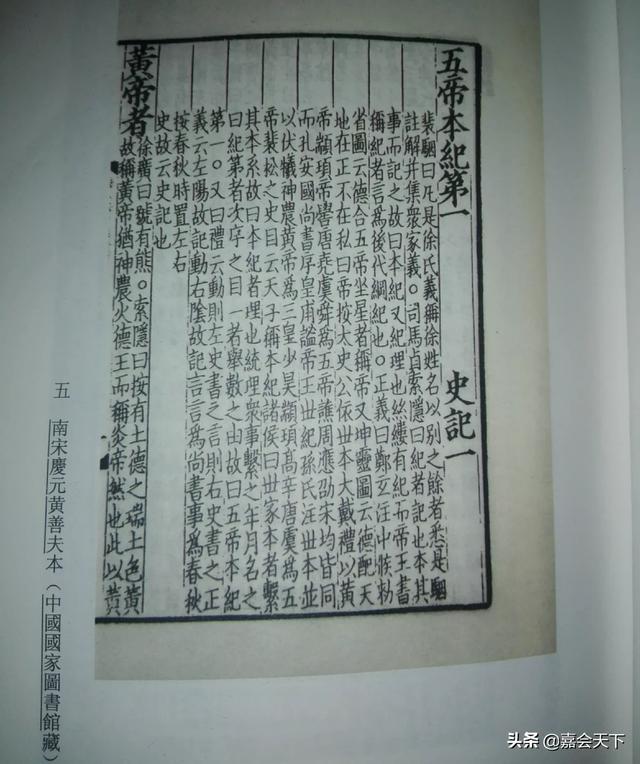 五帝本紀第一 史記一
裴駰曰凡是徐氏義稱徐姓名以別之餘者悉是駰
註解并集衆家義。司馬貞索隱曰紀者記也本其
事而記之故曰本紀又紀理也絲縷有紀而帝王書
稱紀者言為後代綱紀也。正義曰鄭玄注中候勑
省圖云德合五帝坐星者稱帝又坤靈圖云德配天
地在正不在私曰帝按太史公依世本大戴禮以黃
帝顓頊帝嚳唐堯虞舜為五帝譙周應劭宋均皆同
而孔安國尚書序皇甫謐帝王世紀孫氏注世本並
以伏犧神農黃帝為三皇少昊顓頊高辛唐虞為五
帝裴松之史目云天子稱本紀諸侯曰世家本者繫
其本系故曰本紀者理也統理衆事繫之年月名之
曰紀第者次序之目一者舉數之由故曰五帝本紀
第一。又曰禮云動則左史書之言則右史書之正
義云左陽故記動右陰故記言言為尚書事為春秋
按春秋時置左右
史故云史記也
黃帝者
徐廣曰號有熊。索隱曰按有土德之瑞土色黃
故稱黃帝猶神農火德王而稱炎帝然也此以黃
五 南宋慶元黄善夫本（中國國家圖書館藏）
头条 @嘉会天下